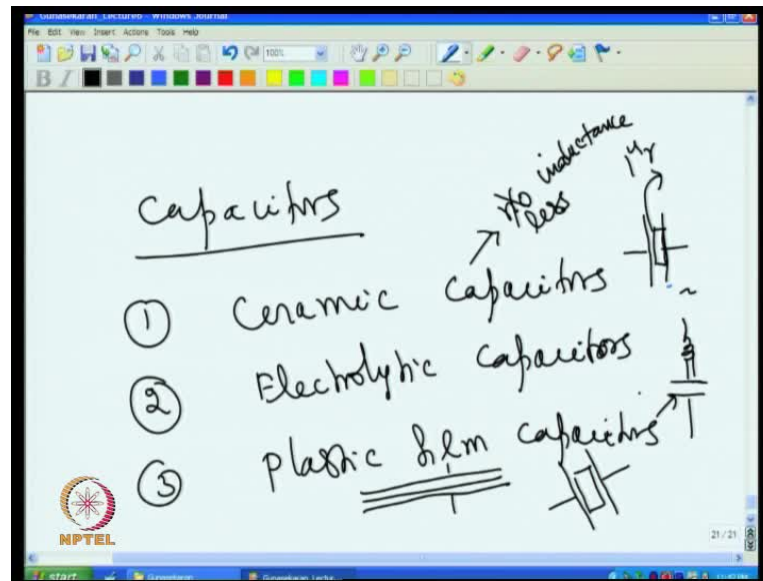 Gunasekaran_Lecture6 - Windows Journal
File Edit View Insert Actions Tools Help
100%
B I
Capacitors
no inductance
less
① Ceramic Capacitors
② Electrolytic Capacitors
③ Plastic film Capacitors
NPTEL
21 / 21
start
Gunasekaran
Gunasekaran_Lectu...